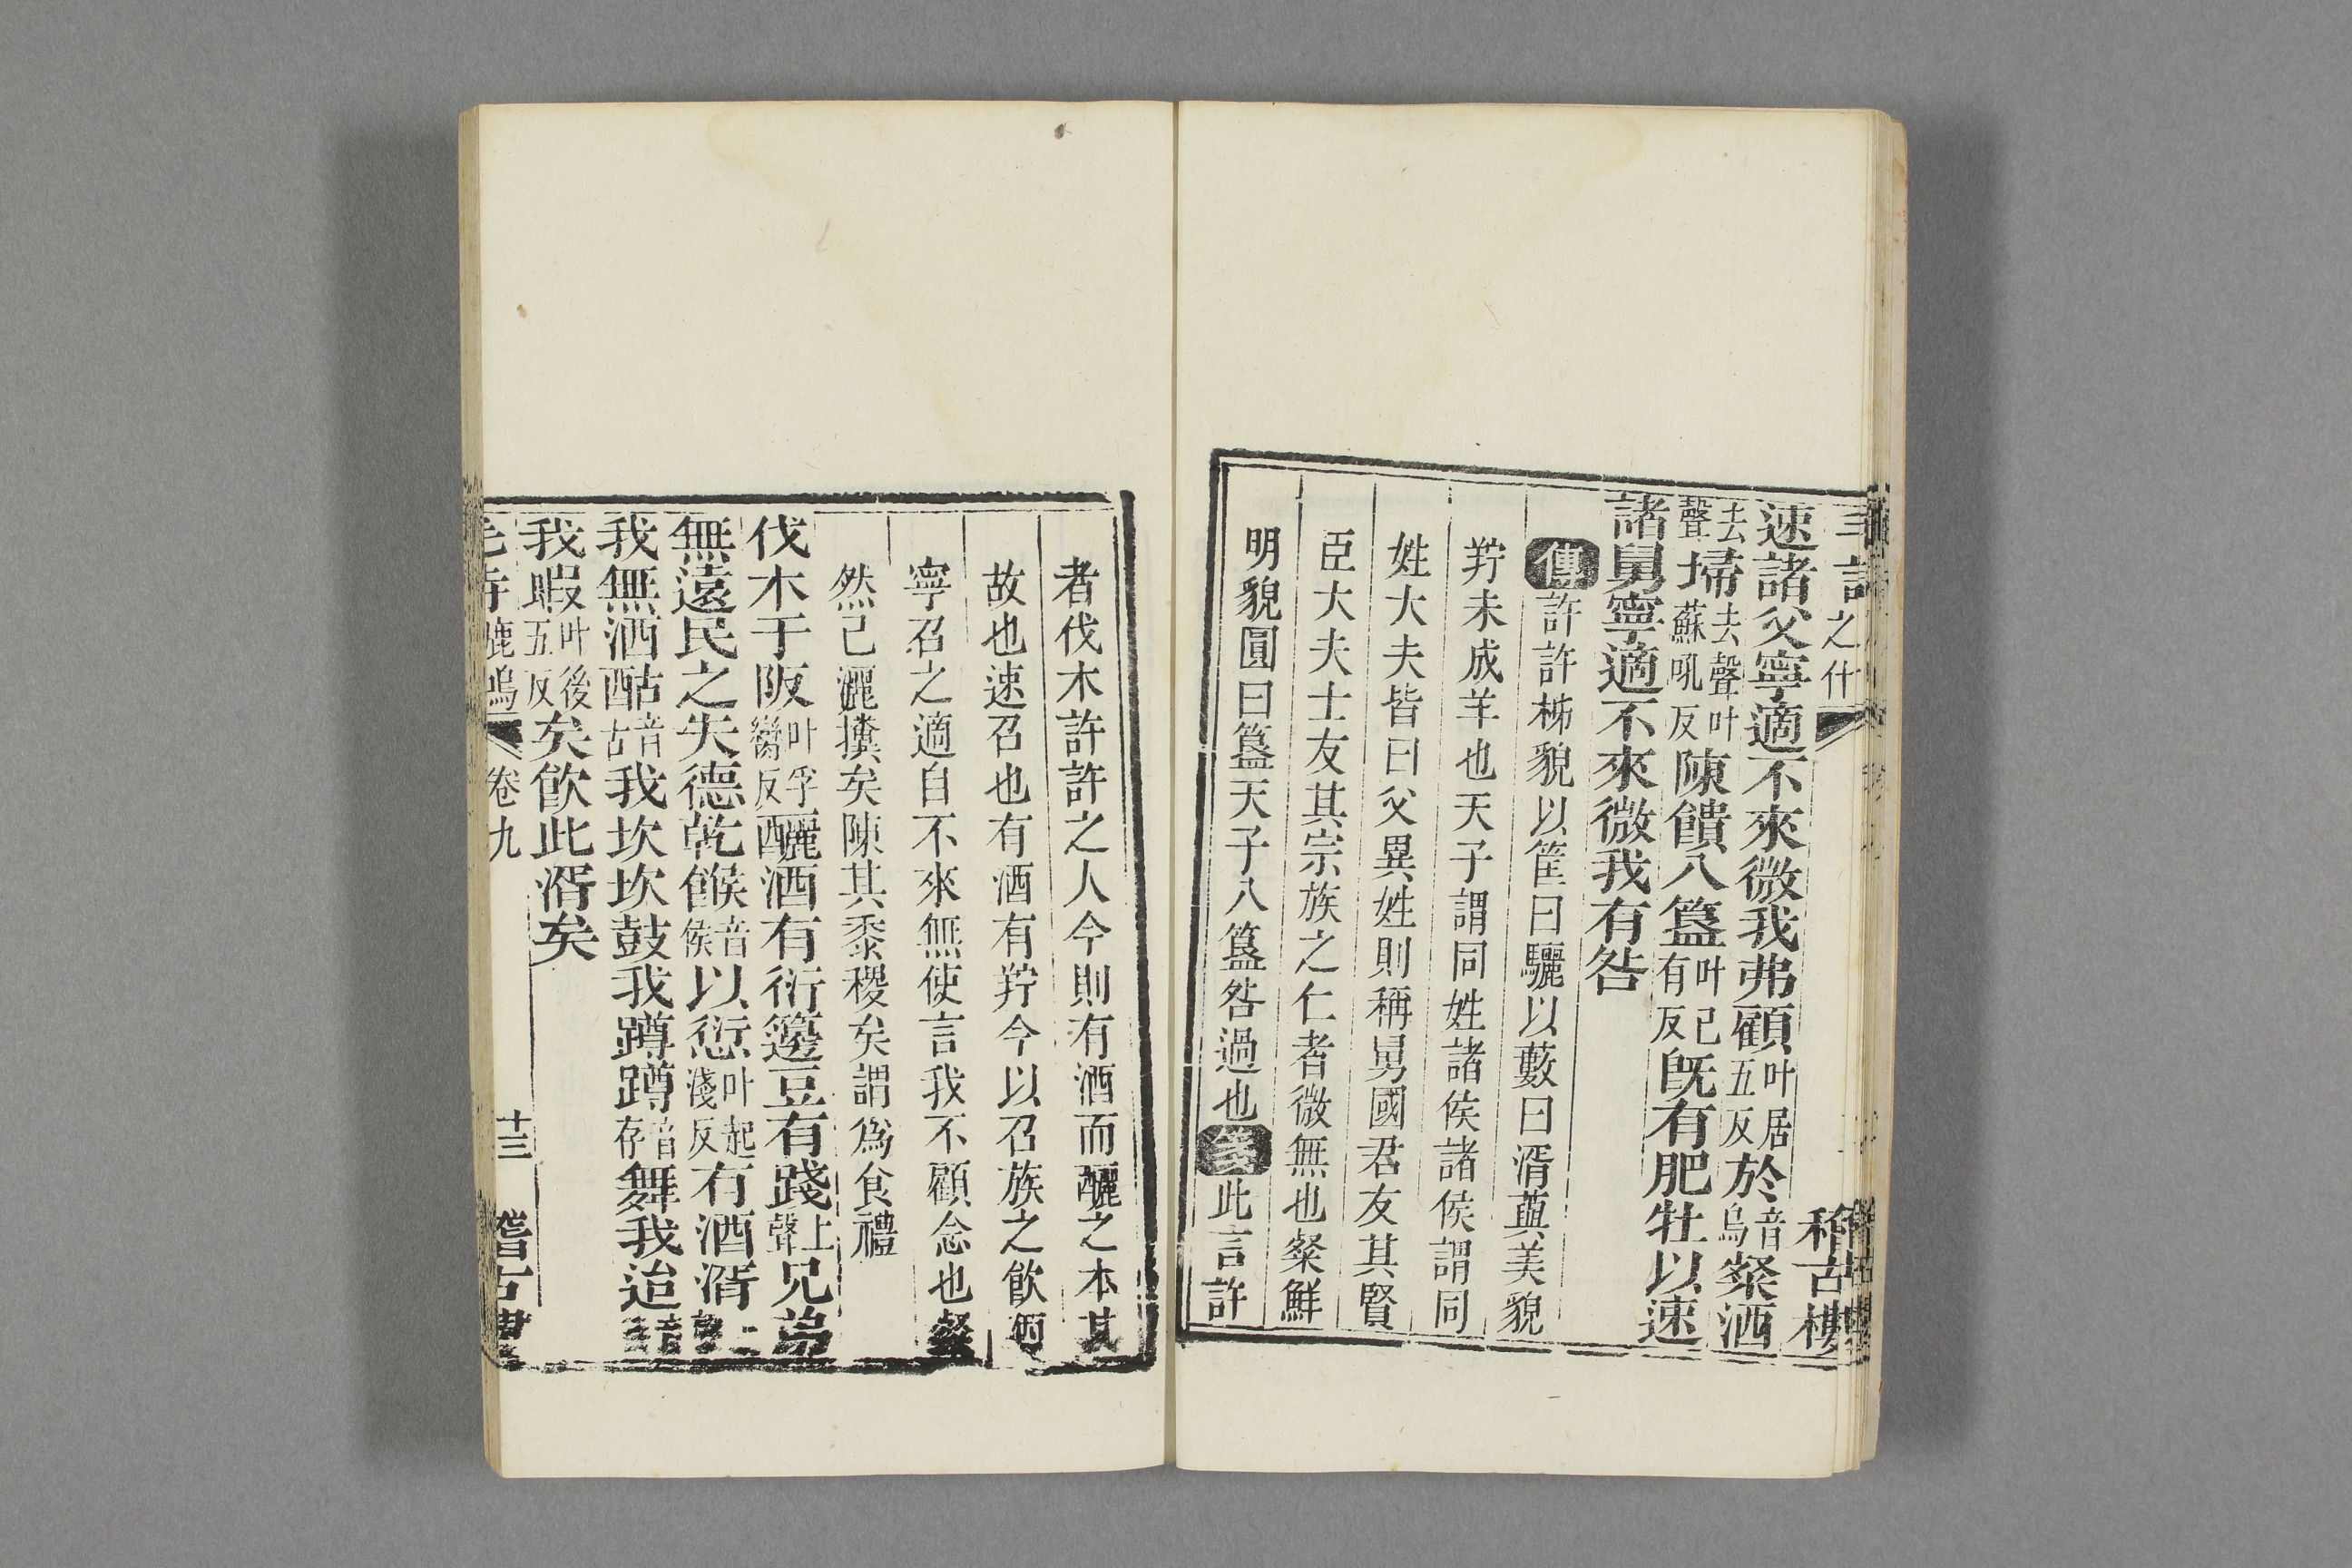 之什 稽古樓
速諸父寧適不來微我弗顧叶居五反於音烏粲洒
去聲埽去聲叶蘇吼反陳饋八簋叶已有反旣有肥牡以速
諸舅寧適不來微我有咎
傳許許柹貌以筐曰釃以藪曰湑藇美貌
羜未成羊也天子謂同姓諸侯諸侯謂同
姓大夫皆曰父異姓則稱舅國君友其賢
臣大夫士友其宗族之仁者微無也粲鮮
明貌圓曰簋天子八簋咎過也箋此言許
者伐木許許之人今則有酒而釃之本其
故也速召也有酒有羜今以召族之飲酒
寧召之適自不來無使言我不顧念也粲
然已灑㩒矣陳其黍稷矣謂爲食禮
伐木于阪叶孚臠反釃酒有衍籩豆有踐上聲兄弟
無遠民之失德乾餱音侯以愆叶起淺反有酒湑上
我無酒酤音古我坎坎鼓我蹲蹲音存舞我迨音
我暇叶後五反矣飮此湑矣
鹿鳴 卷九 十三 稽古樓